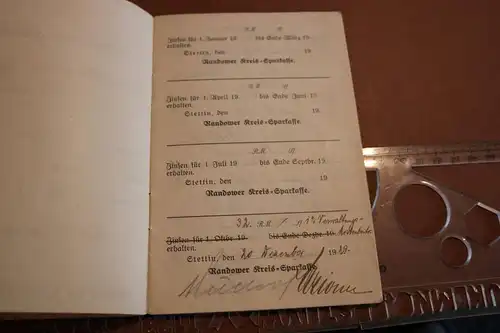 R.M.
Zinsen für 1. Januar 19 bis Ende März 19
erhalten.
Stettin, den 19
Randower Kreis-Sparkasse.
R.M.
Zinsen für 1. April 19 bis Ende Juni 19
erhalten.
Stettin, den 19
Randower Kreis-Sparkasse.
R.M.
Zinsen für 1. Juli 19 bis Ende Septbr. 19
erhalten.
Stettin, den 19
Randower Kreis-Sparkasse.
32. R.M.
Zinsen für 1. Oktbr. 19 bis Ende Dezbr. 19
erhalten.
Stettin, den 20 Dezember 1928.
Randower Kreis-Sparkasse